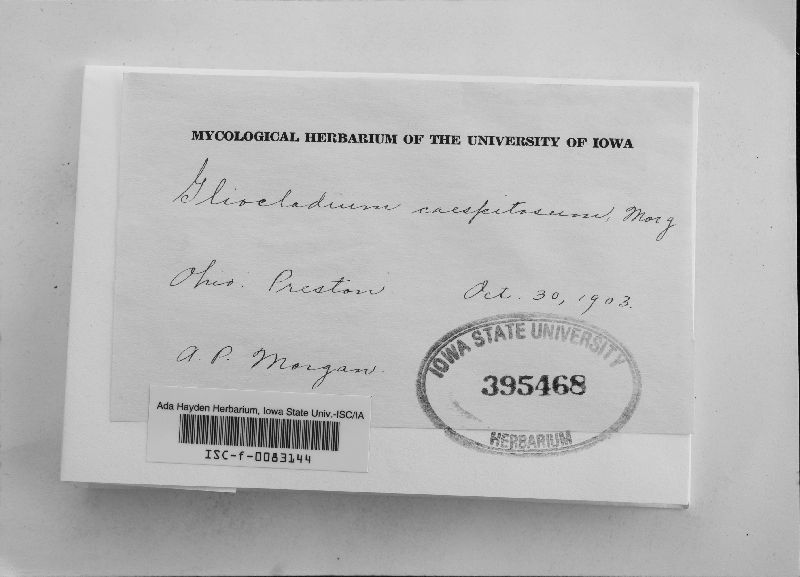 MYCOLOGICAL HERBARIUM OF THE UNIVERSITY OF IOWA
Gliocladium caespitosum, Morg
Ohio. Preston Oct. 30, 1903.
A. P. Morgan.
IOWA STATE UNIVERSITY
395468
HERBARIUM
Ada Hayden Herbarium, Iowa State Univ.-ISC/IA
ISC-f-0083144